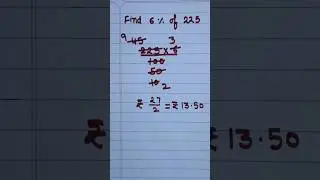 Find 6 % of 225
9 45 3
225 × 6
100
50
10 2
₹ 27/2 = ₹ 13.50
₹ 13.50